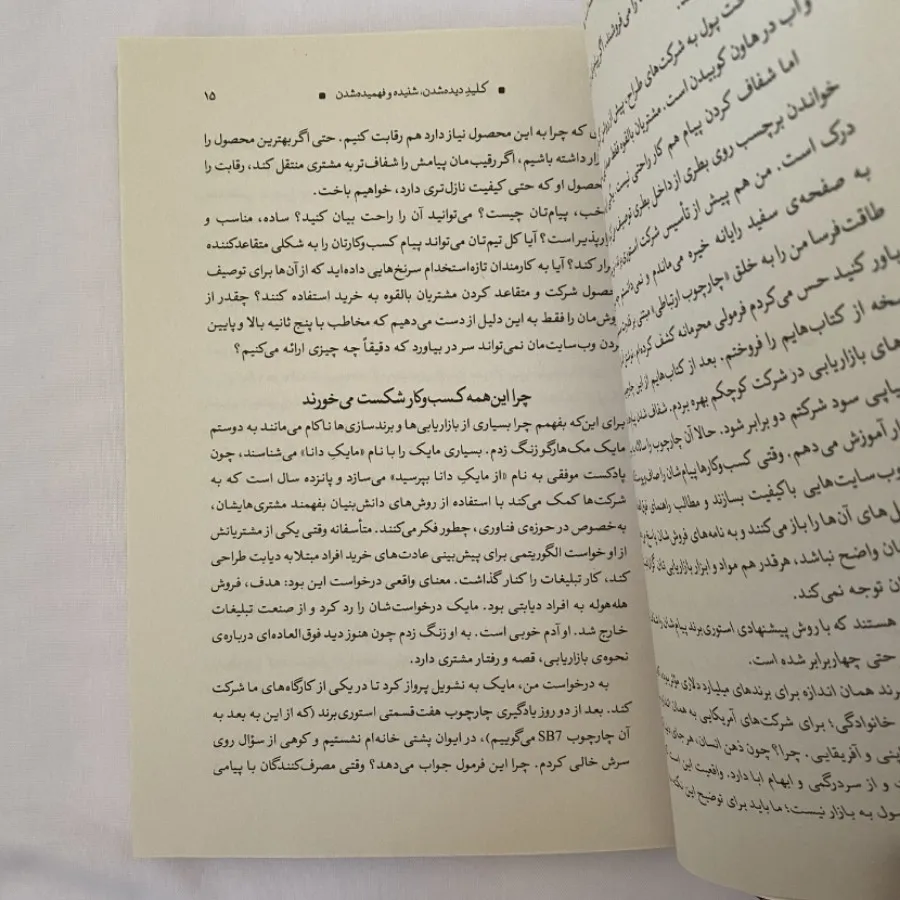 پول به شرکت‌های طراح، بیش از
آب در هاون کوبیدن است. مشتریان بالقوه فقط
اما شفاف کردن پیام هم کار راحتی نیست.
خواندن برچسب روی بطری از داخل بطری توصیف
درک است. من هم پیش از تأسیس شرکت استوری‌برند
به صفحه‌ی سفید رایانه خیره می‌ماندم و نمی‌دانستم
طاقت‌فرسا من را به خلق «چارچوب ارتباطی» مبتنی بر
باور کنید حس می‌کردم فرمولی محرمانه کشف کرده‌ام.
از کتاب‌هایم را فروختم. بعد از کتاب‌هایم از این
بازاریابی در شرکت کوچکم بهره بردم. شفاف
سود شرکتم دو برابر شود. حالا آن چارچوب را سالانه
آموزش می‌دهم. وقتی کسب‌وکارها پیام‌شان را صاف و
وب‌سایت‌هایی باکیفیت بسازند و مطالب راهنمای
آن‌ها را باز می‌کنند و به نامه‌های فروش‌شان پاسخ
واضح نباشد، هرقدر هم مواد و ابزار بازاریابی‌تان
توجه نمی‌کند.
هستند که با روش پیشنهادی استوری‌برند پیام‌شان را
حتی چهار برابر شده است.
همان اندازه برای برندهای میلیارد دلاری مؤثر بوده که
خانوادگی؛ برای شرکت‌های آمریکایی به همان
و آفریقایی. چرا؟ چون ذهن انسان، هر جای
و از سردرگمی و ابهام ابا دارد. واقعیت این است که
به بازار نیست؛ ما باید برای توضیح این
کلیدِ دیده‌شدن، شنیده و فهمیده‌شدن ۱۵
که چرا به این محصول نیاز دارد هم رقابت کنیم. حتی اگر بهترین محصول را
داشته باشیم، اگر رقیب‌مان پیامش را شفاف‌تر به مشتری منتقل کند، رقابت را
محصول او که حتی کیفیت نازل‌تری دارد، خواهیم باخت.
خب، پیام‌تان چیست؟ می‌توانید آن را راحت بیان کنید؟ ساده، مناسب و
است؟ آیا کل تیم‌تان می‌تواند پیام کسب‌وکارتان را به شکلی متقاعدکننده
کند؟ آیا به کارمندان تازه‌استخدام سرنخ‌هایی داده‌اید که از آن‌ها برای توصیف
محصول شرکت و متقاعد کردن مشتریان بالقوه به خرید استفاده کنند؟ چقدر از
فروش‌مان را فقط به این دلیل از دست می‌دهیم که مخاطب با پنج ثانیه بالا و پایین
کردن وب‌سایت‌مان نمی‌تواند سر در بیاورد که دقیقاً چه چیزی ارائه می‌کنیم؟
چرا این‌همه کسب‌وکار شکست می‌خورند
برای این‌که بفهمم چرا بسیاری از بازاریابی‌ها و برندسازی‌ها ناکام می‌مانند به دوستم
مایک مک‌هارگو زنگ زدم. بسیاری مایک را با نام «مایکِ دانا» می‌شناسند، چون
پادکست موفقی به نام «از مایکِ دانا بپرسید» می‌سازد و پانزده سال است که به
شرکت‌ها کمک می‌کند با استفاده از روش‌های دانش‌بنیان بفهمند مشتری‌هایشان،
به‌خصوص در حوزه‌ی فناوری، چطور فکر می‌کنند. متأسفانه وقتی یکی از مشتریانش
از او خواست الگوریتمی برای پیش‌بینی عادت‌های خرید افراد مبتلا به دیابت طراحی
کند، کار تبلیغات را کنار گذاشت. معنای واقعی درخواست این بود: هدف، فروش
هله‌هوله به افراد دیابتی بود. مایک درخواست‌شان را رد کرد و از صنعت تبلیغات
خارج شد. او آدم خوبی است. به او زنگ زدم چون هنوز دید فوق‌العاده‌ای درباره‌ی
نحوه‌ی بازاریابی، قصه و رفتار مشتری دارد.
به درخواست من، مایک به نشویل پرواز کرد تا در یکی از کارگاه‌های ما شرکت
کند. بعد از دو روز یادگیری چارچوب هفت‌قسمتی استوری‌برند (که از این به بعد به
آن چارچوب SB7 می‌گوییم)، در ایوان پشتی خانه‌ام نشستیم و کوهی از سؤال روی
سرش خالی کردم. چرا این فرمول جواب می‌دهد؟ وقتی مصرف‌کنندگان با پیامی